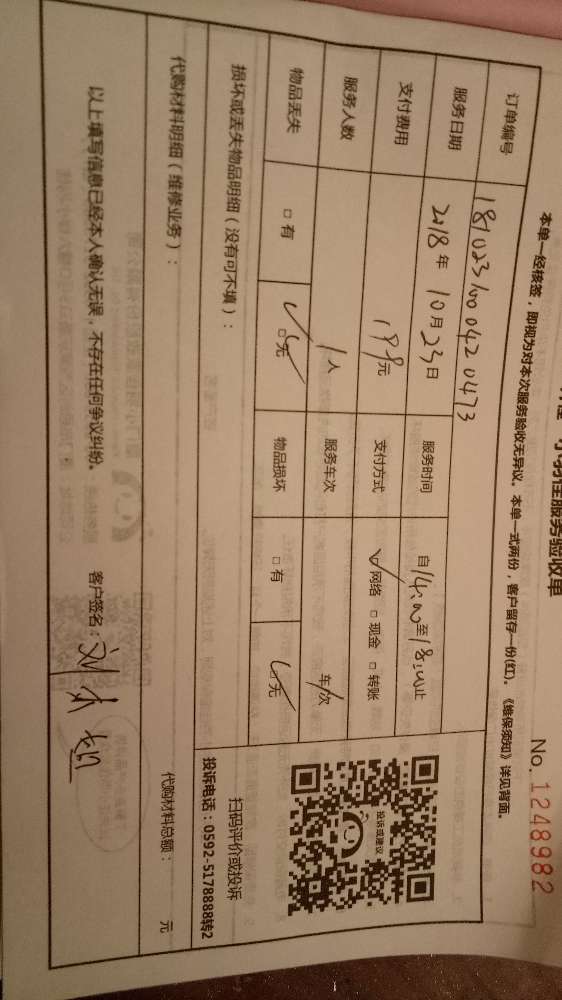 小羽佳服务验收单
No. 1248982
本单一经核签,即视为对本次服务验收无异议。本单一式两份,客户留存一份(红)。《维保须知》详见背面。
订单编号 181023100420473
服务日期 2018年10月23日 服务时间 自14:00至18:00止
支付费用 199元 支付方式 ✓网络 □现金 □转账
服务人数 1人 服务车次 / 车次
物品丢失 □有 ✓□无 物品损坏 □有 ✓□无
投诉或建议
扫码评价或投诉
投诉电话:0592-5178888转2
损坏或丢失物品明细(没有可不填):
代购材料明细(维修业务): 代购材料总额: 元
以上填写信息已经本人确认无误,不存在任何争议纠纷。 客户签名: